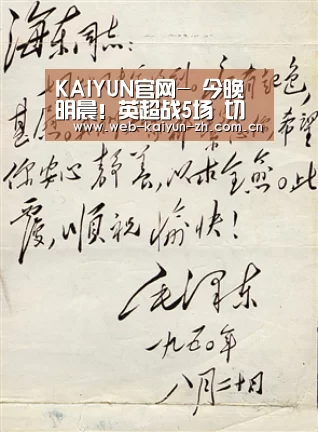 海东同志：
KAIYUN官网- 今晚
明晨！英超战5场 切
www-web-kaiyun-zh.com.cn
有起色，
甚慰。 希望
你安心静养，以求全愈。此
覆，顺祝 愉快！
毛泽东
一九五〇年
八月二十日